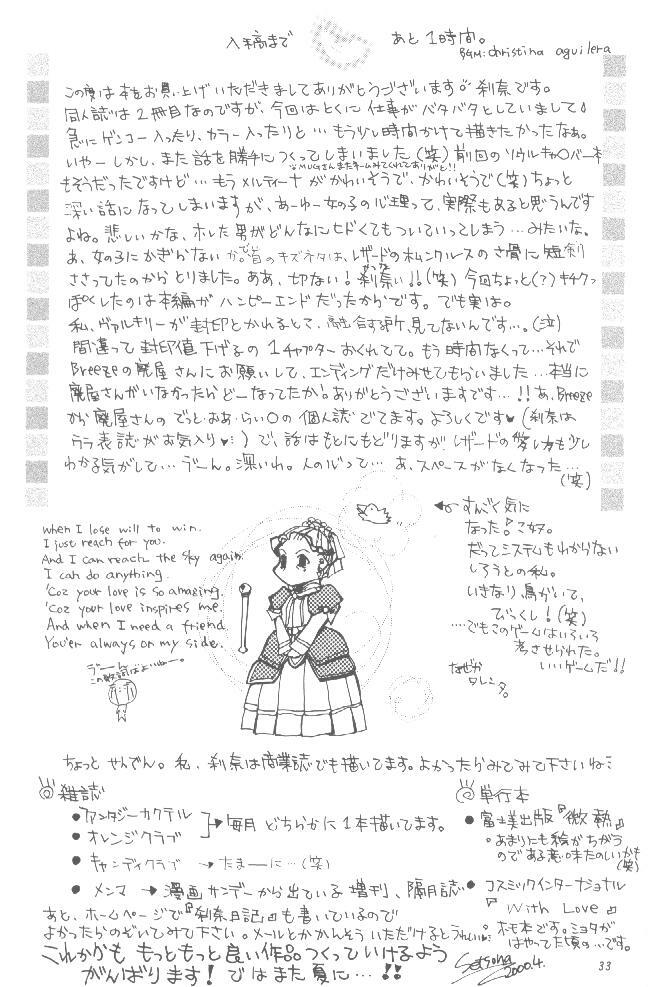 入稿まで あと1時間。
BGM: christina aguilera
この度は本をお買い上げいただきましてありがとうございます 刹奈です。
同人誌は2冊目なのですが、今回はとくに仕事がバタバタとしていまして
急にゲンコー入ったり、カラー入ったりと…もう少し時間かけて描きたかったなぁ。
いやーしかし、また話を勝手につくってしまいました(笑)前回のソウルキャ○バー本
MUGさんまたネームみてくれてありがと!!
もそうだったですけど…もうメルティーナがかわいそうで、かわいそうで(笑)ちょっと
深い話になってしまいますが、あーゆー女の子の心理って、実際もあると思うんです
よね。悲しいかな、ホレた男がどんなにヒドくてもついていってしまう…みたいな。
あ、女の子にかぎらないか。で首のキズネタは、レザードのホムンクルスの骨に短剣
ささってたのからとりました。ああ、切ない!刹奈い!!(笑)今回ちょっと(?)キチクっ
ぽくしたのは本編がハッピーエンドだったからです。でも実は。
私、ヴァルキリーが封印とかれるとこ、融合する所、見てないんです…。(泣)
間違って封印値下げるの1チャプターおくれてて。もう時間なくって…それで
Breezeの廃屋さんにお願いして、エンディングだけみせてもらいました…本当に
廃屋さんがいなかったらどーなってたか!ありがとうございますです…!!あ、Breeze
から廃屋さんのでっと・おあ・らい○の個人誌でてます。よろしくです♥(刹奈は
ウラ表誌がお気入り♥)で、話はもとにもどりますが、レザードの愛し方も少し
わかる気がして…うーん。深いわ。人の心って…あ、スペースがなくなった…
(笑)
when I lose will to win.
I just reach for you.
And I can reach the sky again.
I can do anything.
'Coz your love is so amazing.
'Coz your love inspires me.
And when I need a friend
You'er always on my side.
この歌詞はよいねー。
←すんごく気に
なった!コ奴。
だってシステムもわからない
しろうとの私。
いきなり鳥がいて、
びっくし!(笑)
…でもこのゲームはいろいろ
考させられた。
いいゲームだ!!
なぜか
タレニタ。
ちょっとせんでん。私、刹奈は商業誌でも描いてます。よかったらみてみて下さいね
雑誌
●ファンタジーカクテル
●オレンジクラブ
→毎月どちらかに1本描いてます。
●キャンディクラブ →たまーに…(笑)
●メンマ →漫画サンデーから出ている増刊、隔月誌
単行本
●富士美出版『微熱』
。あまりにも絵がちがう
のである意味たのしいかも
(笑)
●コスミックインターナショナル
『With Love』
。ホモ本です。ミョタが
はやってた頃の…です。
あと、ホームページで『刹奈日記』も書いているので
よかったらのぞいてみて下さい。メールとかかんそういただけるとうれしい。
これからも もっともっと良い作品つくっていけるよう
がんばります!ではまた夏に…!!
Setsuna
2000.4.
33